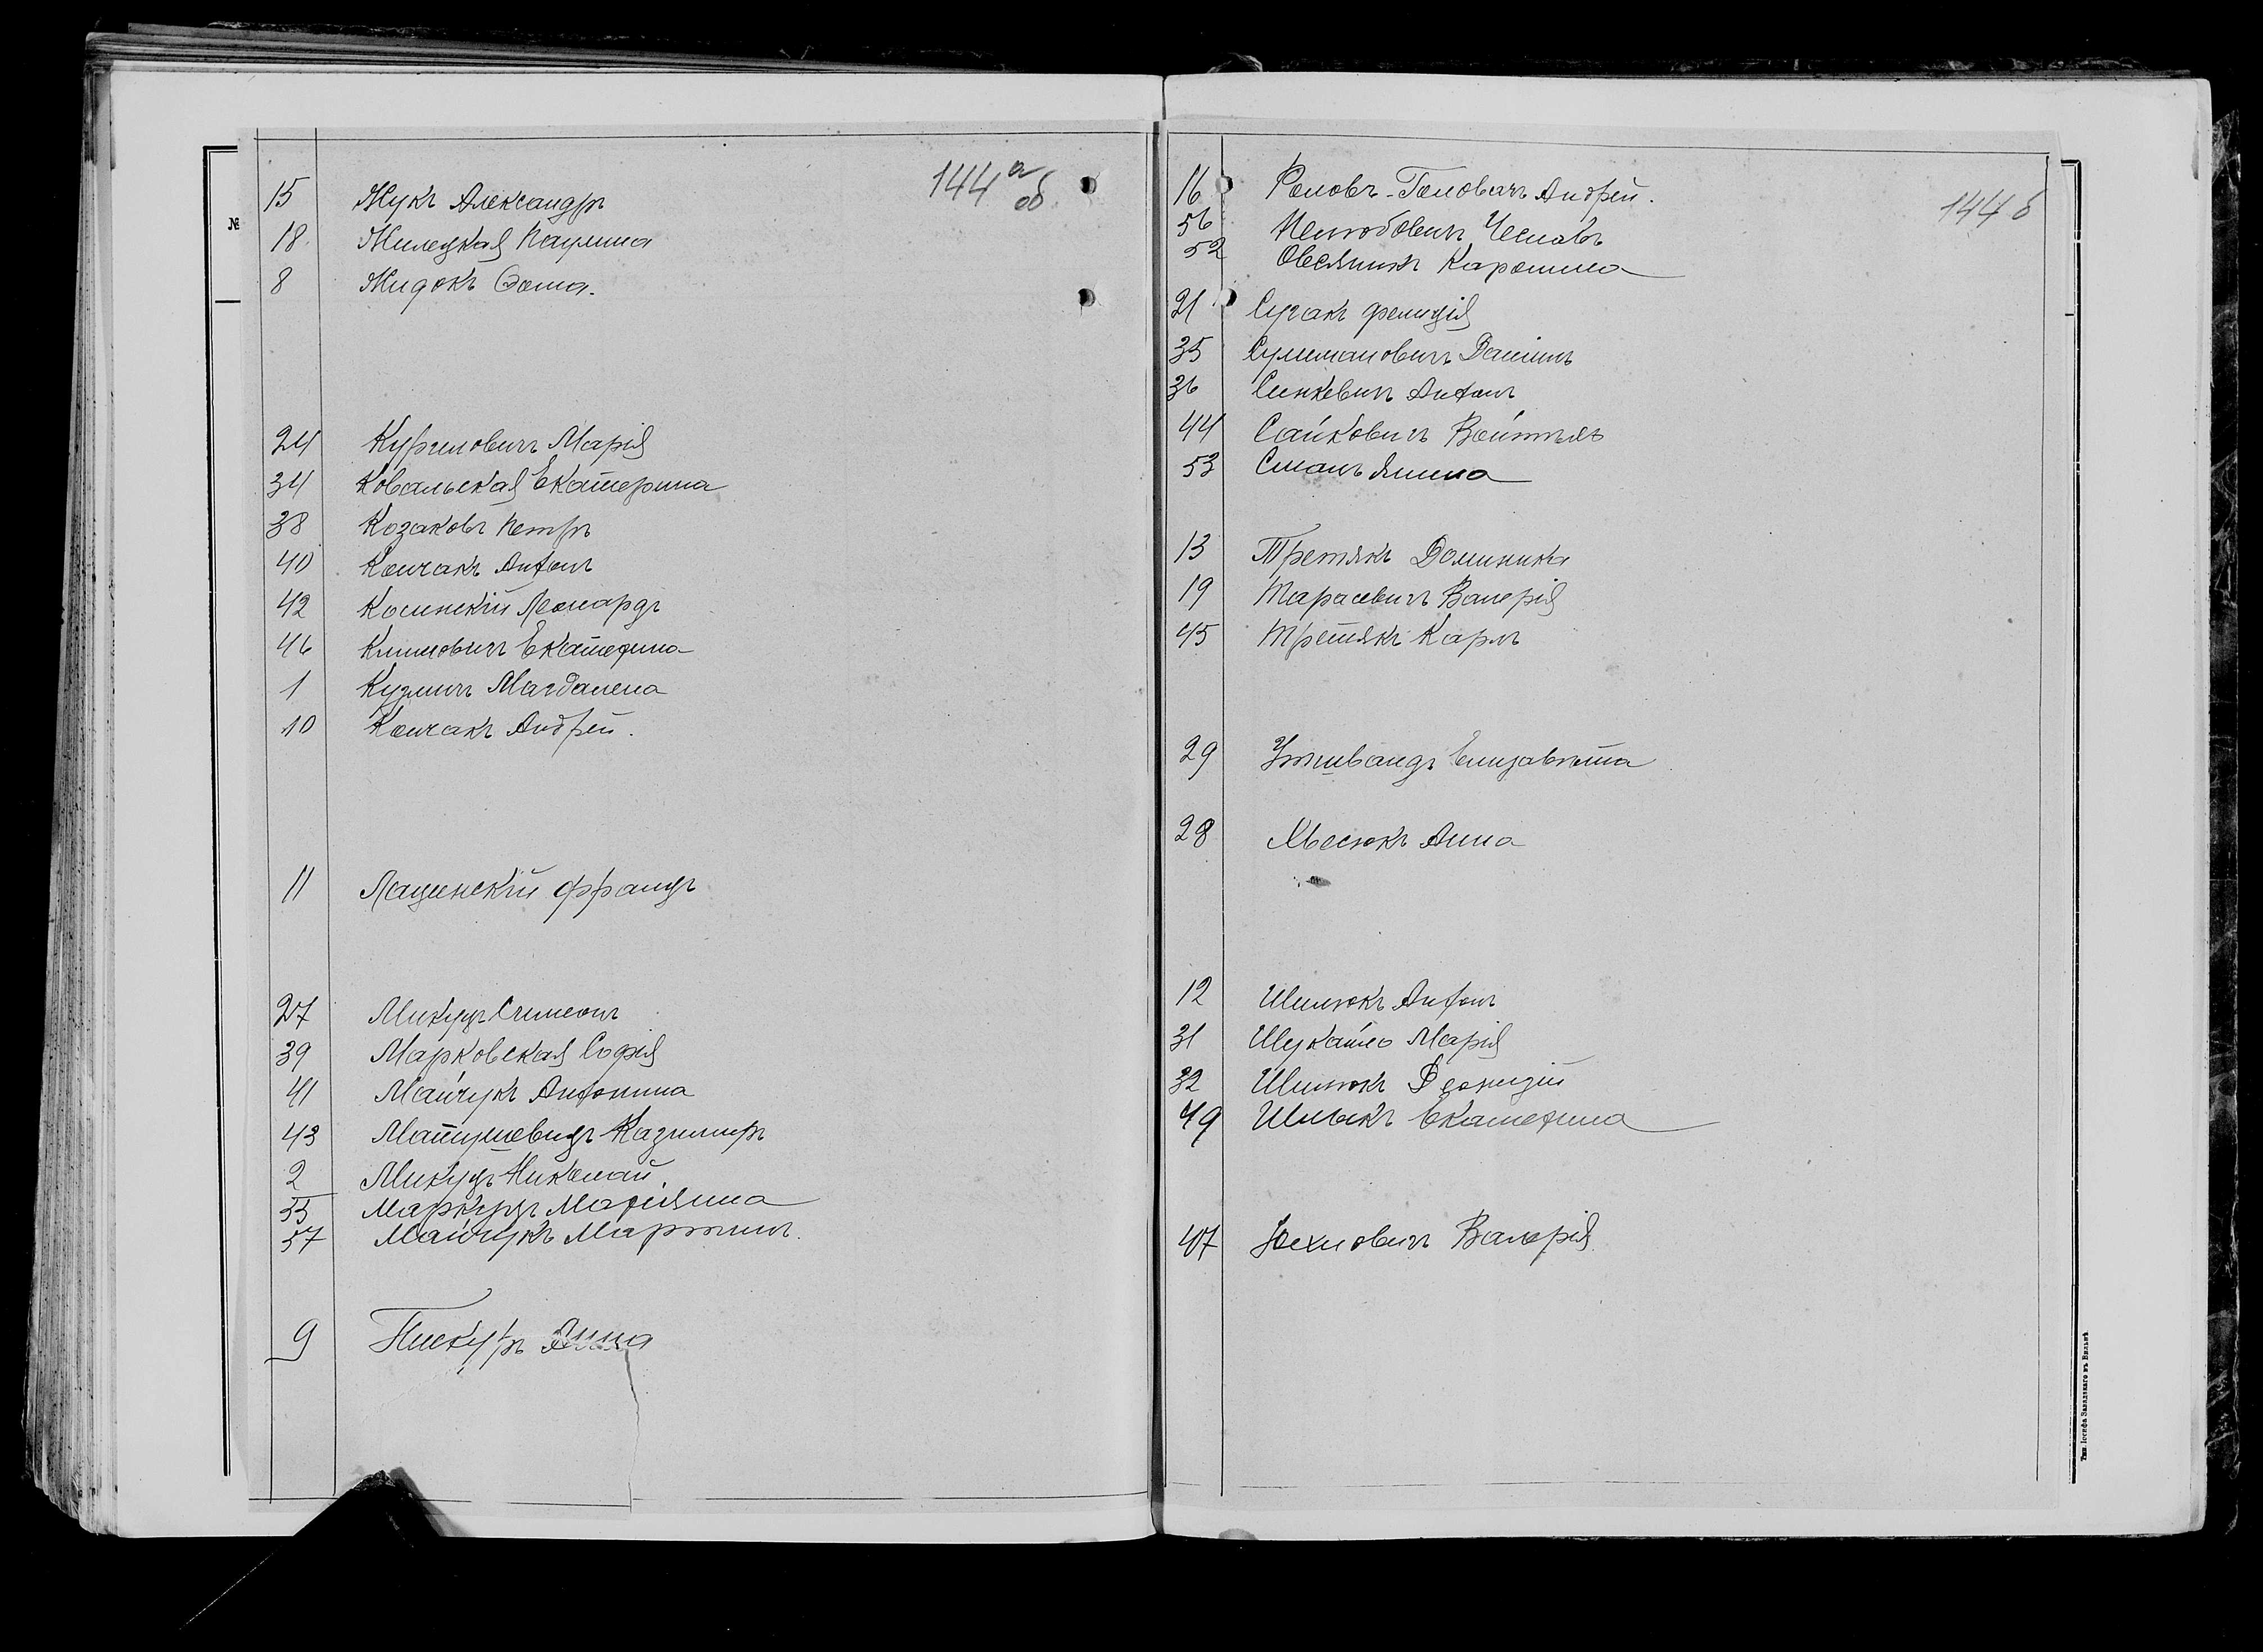 144 а об
№
15 Жукъ Александръ
18 Жилецкая Паулина
8 Жидокъ Ѳома.
24 Куриловичъ Марія
34 Ковальская Екатерина
38 Козаковъ Петръ
40 Кончакъ Антонъ
42 Косинскій Леонардъ
46 Климовичъ Екатерина
1 Кузмичъ Магдалена
10 Кончакъ Андрей.
11 Лащинскій Францъ
27 Микуцъ Симеонъ
39 Марковская Софія
41 Майчукъ Антонина
43 Матушевицъ Казимиръ
2 Микуцъ Николай
55 Маркуцъ Маріянна
57 Майчукъ Мартинъ.
9 Пискуръ Анна
144 б
16 Головачъ Андрей.
56 Чеславъ
52 Овсяникъ Каролина
21 Сугакъ Фелиція
35 Сулимановичъ Даніилъ
36 Синкевичъ Антонъ
44 Сайковичъ Войтѣхъ
53 Янина
13 Третякъ Доминика
19 Тарасевичъ Валерія
45 Третякъ Карлъ
29 Елизавета
28 Хвесюкъ Анна
12 Шилюкъ Антонъ
31 Шукайло Марія
32 Шилюкъ Діонизій
49 Екатерина
47 Юхновичъ Валерія
Тип. Іосифа Завадзкаго въ Вильнѣ